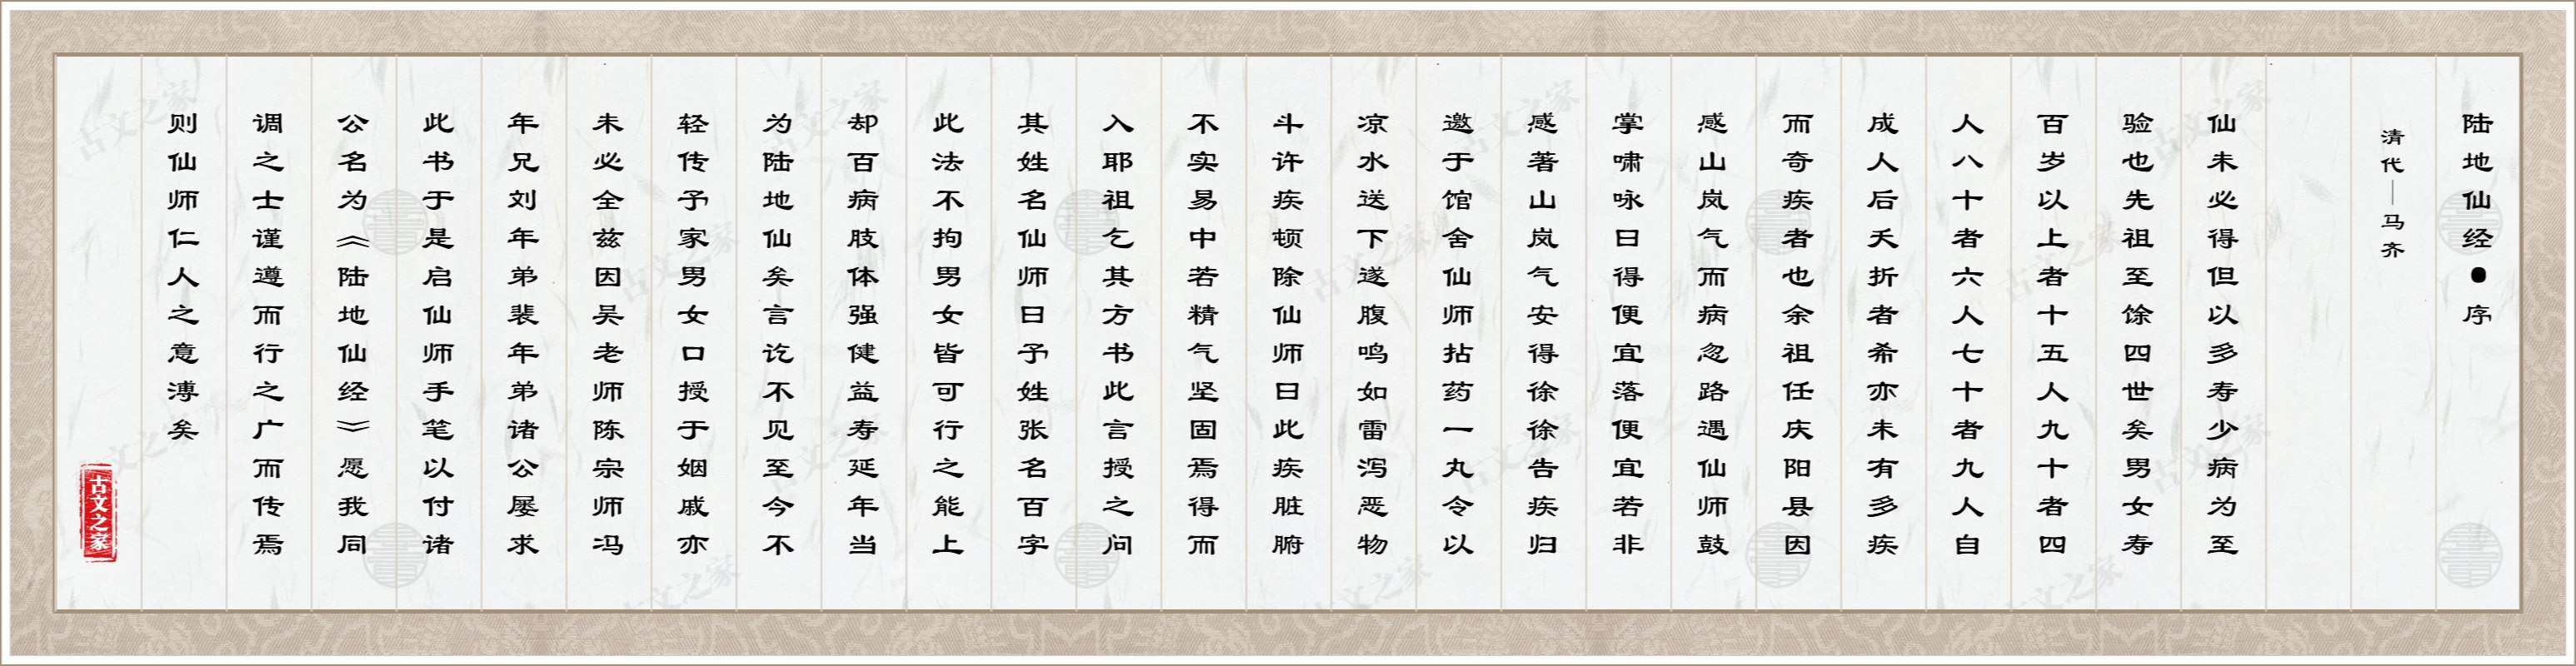 陆地仙经●序
清代—马齐
仙未必得但以多寿少病为至
验也先祖至馀四世矣男女寿
百岁以上者十五人九十者四
人八十者六人七十者九人自
成人后夭折者希亦未有多疾
而奇疾者也余祖任庆阳县因
感山岚气而病忽路遇仙师鼓
掌啸咏曰得便宜落便宜若非
感著山岚气安得徐徐告疾归
邀于馆舍仙师拈药一丸令以
凉水送下遂腹鸣如雷泻恶物
斗许疾顿除仙师曰此疾脏腑
不实易中若精气坚固焉得而
入耶祖乞其方书此言授之问
其姓名仙师曰予姓张名百字
此法不拘男女皆可行之能上
却百病肢体强健益寿延年当
为陆地仙矣言讫不见至今不
轻传予家男女口授于姻戚亦
未必全兹因吴老师陈宗师冯
年兄刘年弟裴年弟诸公屡求
此书于是启仙师手笔以付诸
公名为《陆地仙经》愿我同
调之士谨遵而行之广而传焉
则仙师仁人之意溥矣
古文之家